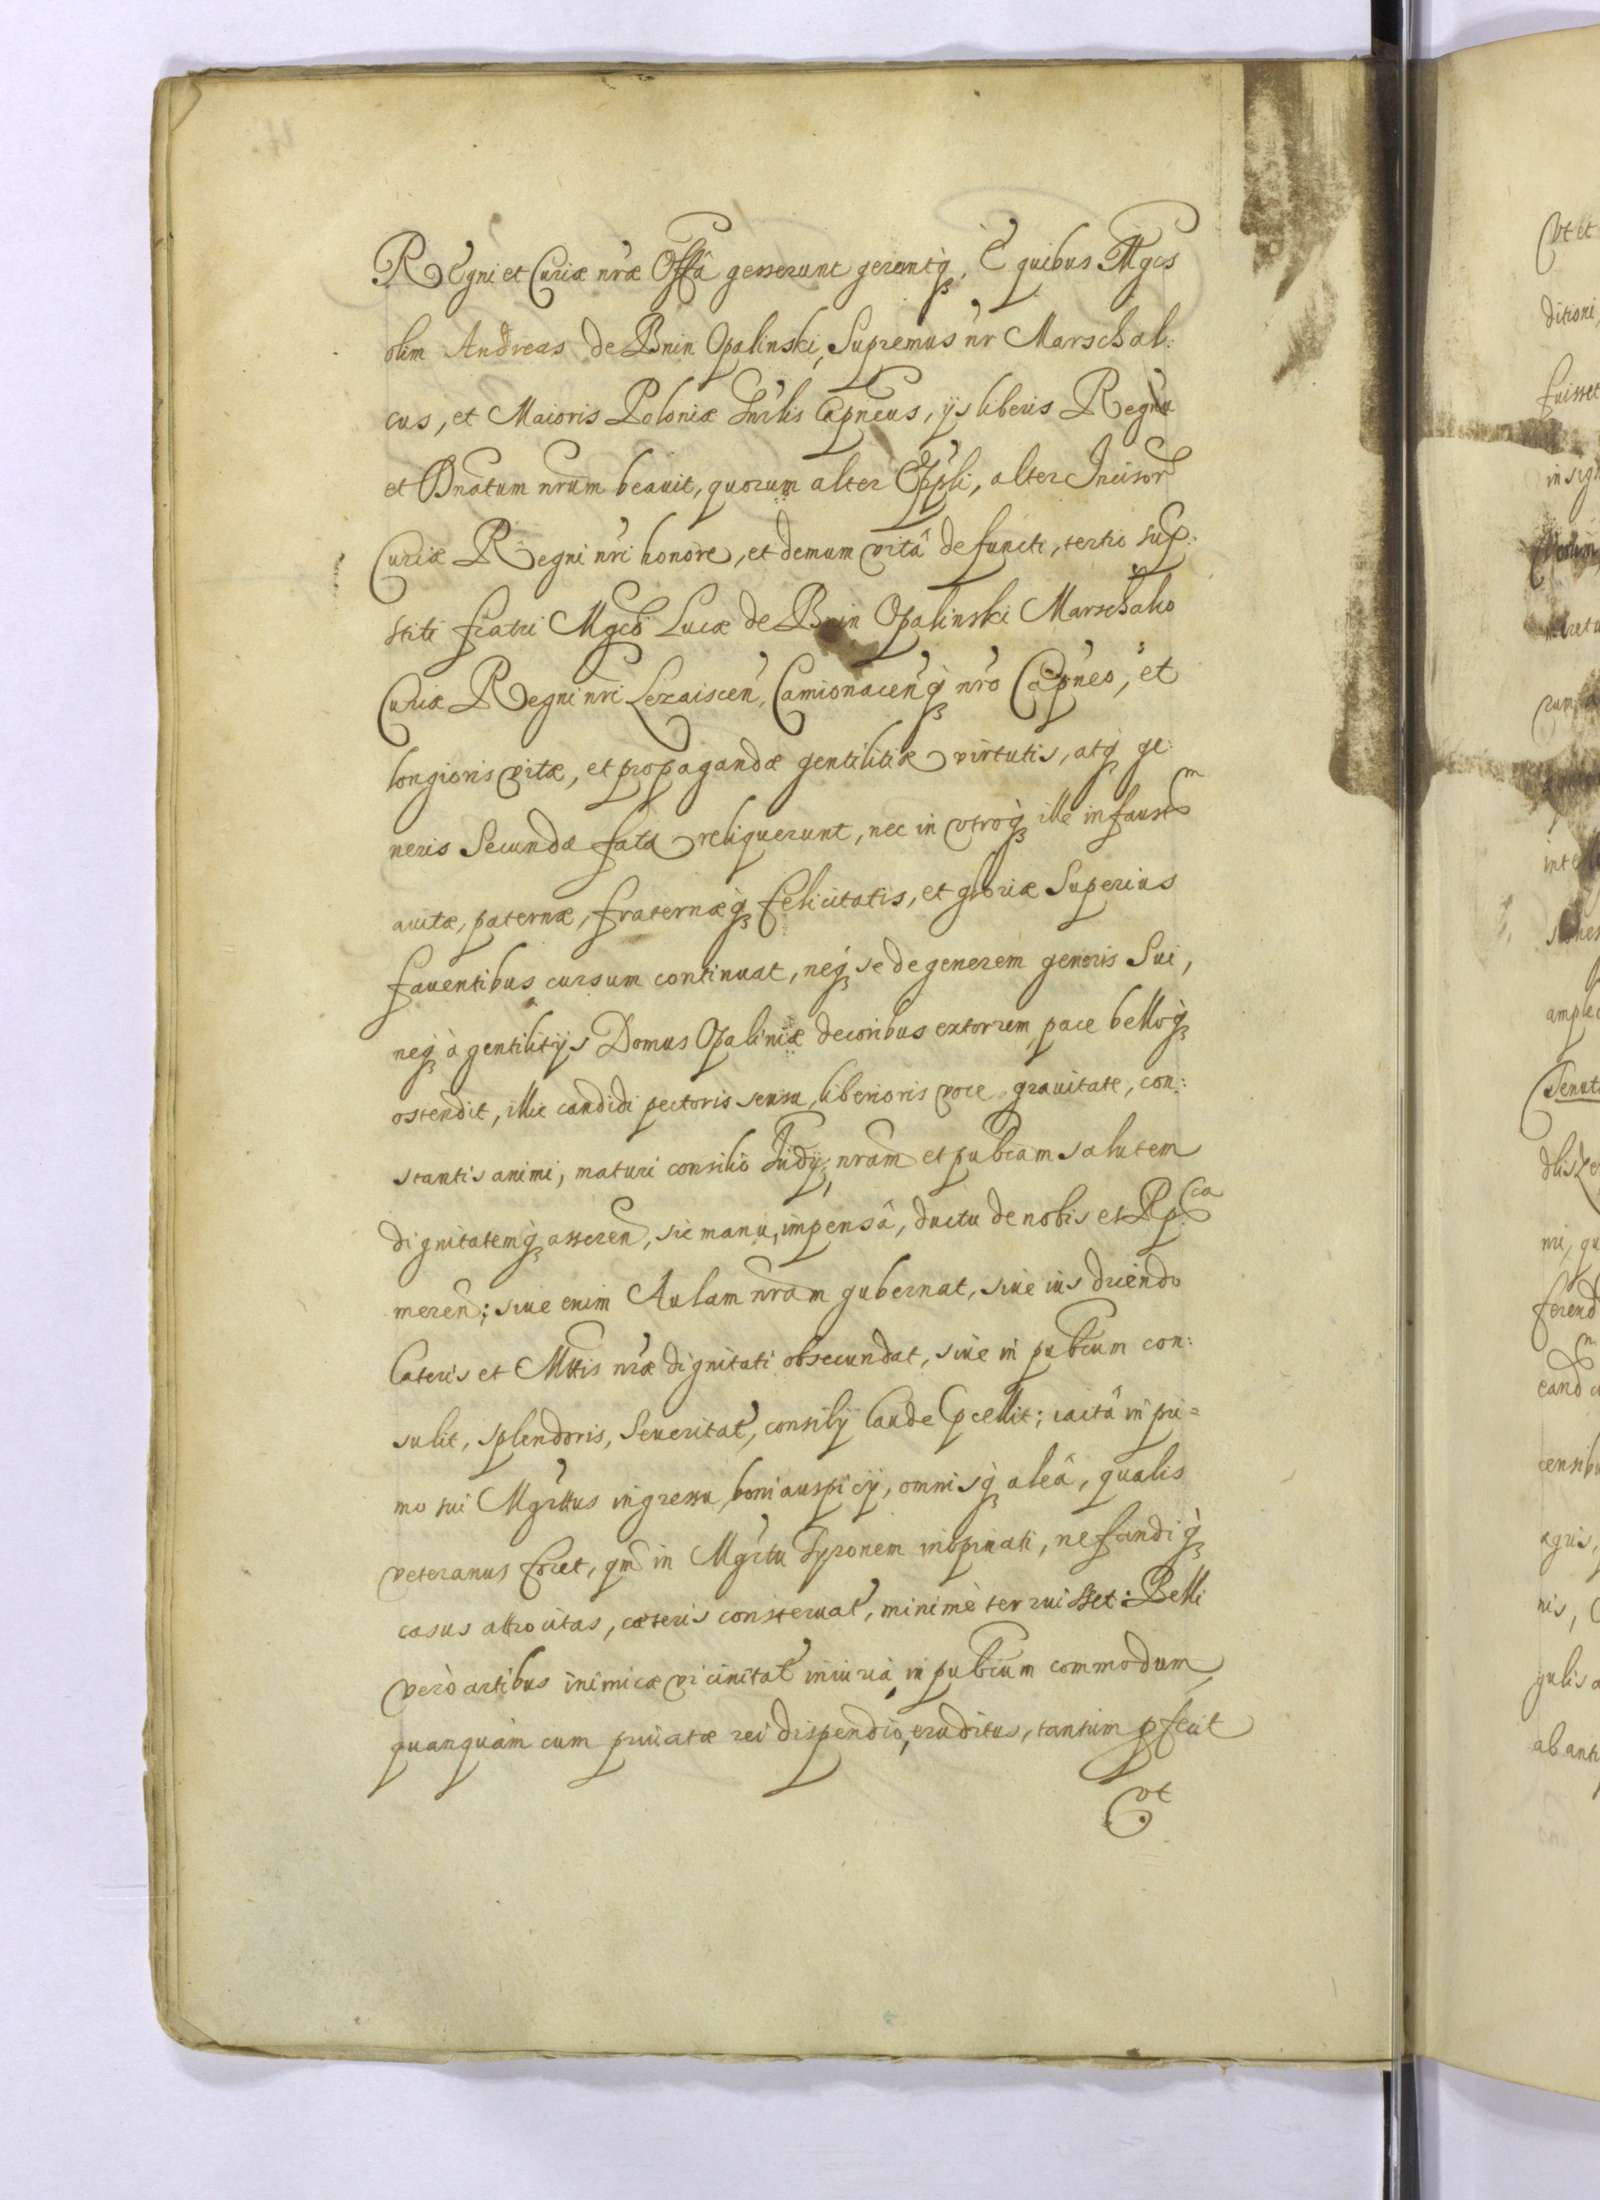 REgni et Curiæ nr̃æ Offâ gesserunt geruntq́;, E quibus Mgcs
olim Andreas de Bnin Opalinski, Supremus nr̃ Marschal:
cus, et Maioris Poloniæ Gnr̃lis Capneus, ijs liberis Regnũ
et Snatum nrũm beauit, quorum alter Eppli, alter Incisor
Curiæ Regni nr̃i honore, et demum vitâ defuncti, tertio sup:
stiti fratri Mgco Lucæ de Bnin Opalinski Marschalco
Curiæ Regni nri Lezaiscen̄, Camionacen̄q́; nr̃o Capneo, et
longioris vitæ, et propagandæ gentilitiæ virtutis, atq́; ge:
neris Secundæ fata reliquerunt, nec in vtroq́; ille infaustũm
auitæ, paternæ, fraternæq́; felicitatis, et gloriæ Superius
fauentibus cursum continuat, neq́; se degenerem generis Sui,
neq́; à gentilitijs Domus Opaliniæ decoribus extorrem pace belloq́;
ostendit, illic candidi pectoris sensu, liberioris voce, grauitate, con:
stantis animi, maturi consilio Iudij, nram et pubcam salutem
dignitatemq́; asseren̄, sic manu, impensâ, ductu de nobis et Rpca
meren̄; siue enim Aulam nram gubernat, siue ius dicendo
Lateris et Mttis nr̃æ dignitati obsecundat, siue in pubcum con:
sulit, splendoris, Seueritat̄, consilij laude p̄cellit; iactâ in pri=
mo sui Mgr̃ttus ingressu, boni auspicij, omnisq́; aleâ, qualis
veteranus foret, qm̄ in Mgr̃tu Tyronem inopinati, nefandiq́;
casus attrocitas, cæteris consternat̄, minimè terruisset: Belli
verò artibus inimicæ vicinitat̄ iniuriâ in pubcum commodum,
quanquàm cum priuatæ rei dispendio, eruditus, tantùm pfecit
vt